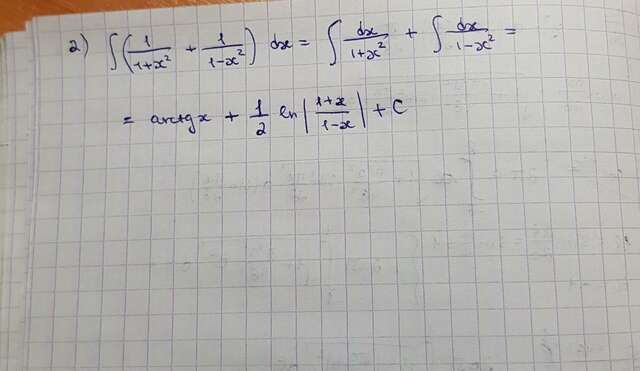 2) ∫(1/(1+x²) + 1/(1-x²)) dx = ∫ dx/(1+x²) + ∫ dx/(1-x²) =
= arctgx + 1/2 ln|(1+x)/(1-x)| + C